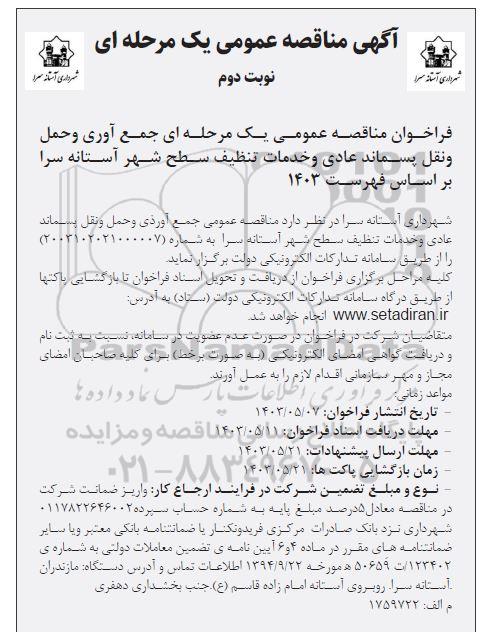 آگهی مناقصه عمومی یک مرحله ای
نوبت دوم
شهرداری آستانه سرا
شهرداری آستانه سرا
فراخوان مناقصه عمومی یک مرحله ای جمع آوری وحمل
ونقل پسماند عادی وخدمات تنظیف سطح شهر آستانه سرا
بر اساس فهرست ۱۴۰۳
شهرداری آستانه سرا در نظر دارد مناقصه عمومی جمع آورذی وحمل ونقل پسماند
عادی وخدمات تنظیف سطح شهر آستانه سرا به شماره (۲۰۰۳۱۰۲۰۲۱۰۰۰۰۰۷)
را از طریق سامانه تدارکات الکترونیکی دولت برگزار نماید.
کلیه مراحل برگزاری فراخوان از دریافت و تحویل اسناد فراخوان تا بازگشایی پاکتها
از طریق درگاه سامانه تدارکات الکترونیکی دولت (ستاد) به آدرس:
www.setadiran.ir انجام خواهد شد.
متقاضیان شرکت در فراخوان در صورت عدم عضویت در سامانه، نسبت به ثبت نام
و دریافت گواهی امضای الکترونیکی (به صورت برخط) برای کلیه صاحبان امضای
مجاز و مهر سازمانی اقدام لازم را به عمل آورند.
مواعد زمانی:
- تاریخ انتشار فراخوان: ۱۴۰۳/۰۵/۰۷
- مهلت دریافت اسناد فراخوان: ۱۴۰۳/۰۵/۱۱
- مهلت ارسال پیشنهادات: ۱۴۰۳/۰۵/۲۱
- زمان بازگشایی پاکت ها: ۱۴۰۳/۰۵/۲۱
- نوع و مبلغ تضمین شرکت در فرایند ارجاع کار: واریز ضمانت شرکت
در مناقصه معادل۵درصد مبلغ پایه به شماره حساب سپرده۰۱۱۷۸۲۲۶۴۶۰۰۲
شهرداری نزد بانک صادرات مرکزی فریدونکنار یا ضمانتنامه بانکی معتبر ویا سایر
ضمانتنامه های مقرر در ماده ۴و۶ آیین نامه ی تضمین معاملات دولتی به شماره ی
۱۲۳۴۰۲/ت ۵۰۶۵۹ ه مورخه ۱۳۹۴/۹/۲۲ اطلاعات تماس و آدرس دستگاه: مازندران
.آستانه سرا. روبروی آستانه امام زاده قاسم (ع).جنب بخشداری دهفری
م الف: ۱۷۵۹۷۲۲